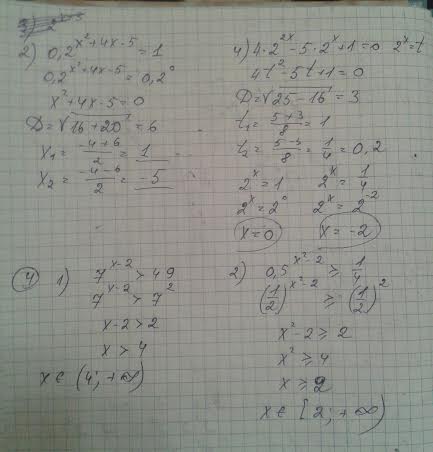 2) 0,2^(x²+4x-5) = 1
0,2^(x²+4x-5) = 0,2⁰
x²+4x-5=0
D=√16+20=6
x₁= (-4+6)/2 = 1
x₂= (-4-6)/2 = -5
4) 4·2^(2x)-5·2^x+1=0 2^x=t
4t²-5t+1=0
D=√25-16=3
t₁= (5+3)/8 = 1
t₂= (5-3)/8 = 1/4 = 0,2
2^x=1 2^x=1/4
2^x=2⁰ 2^x=2^(-2)
x=0 x=-2
④ 1) 7^(x-2) > 49
7^(x-2) > 7²
x-2>2
x>4
x∈(4;+∞)
2) 0,5^(x²-2) ≥ 1/4
(1/2)^(x²-2) ≥ (1/2)²
x²-2≥2
x²≥4
x≥2
x∈[2;+∞)